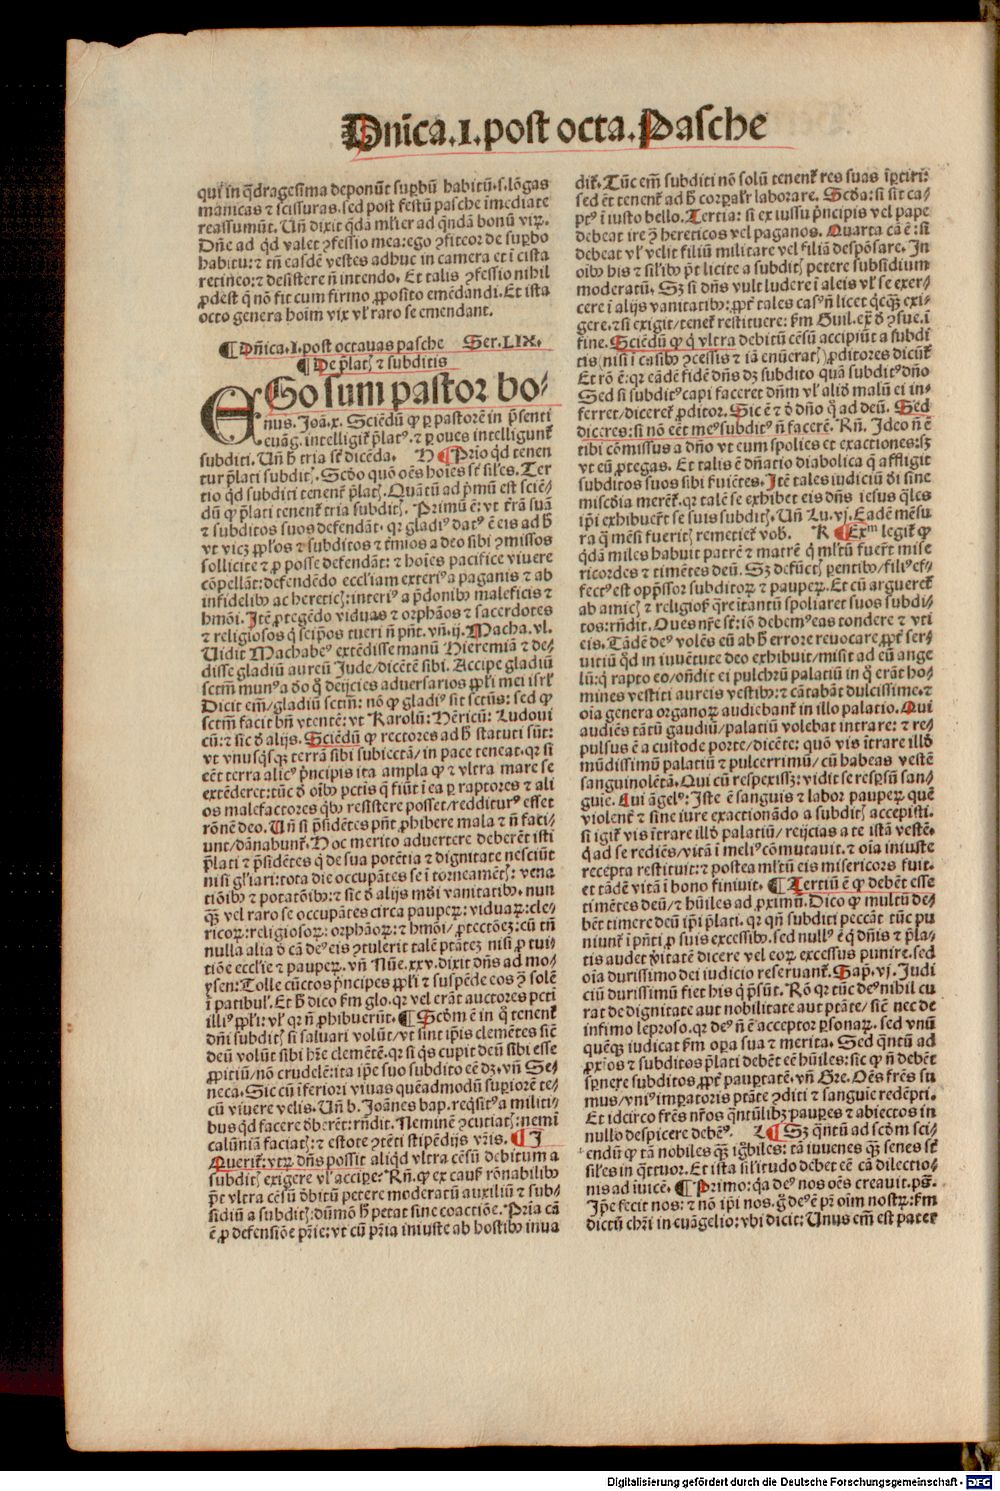 Dn̄ica.I.post octa.Pasche
qui in q̄dragesima deponūt suꝑbū habitū.s.lōgas
manicas ⁊ scissuras.sed post festū pasche īmediate
reassumūt. Un̄ dixit q̄dā ml̓ier ad q̄ndā bonū viꝝ.
Dn̄e ad qd̓ valet ꝯfessio mea:ego ꝯfiteor de suꝑbo
habitu:⁊ tn̄ easdē vestes adhuc in camera et ī cista
retineo:⁊ desistere n̄ intendo. Et talis ꝯfessio nihil
ꝓdest q̄ nō fit cum firmo ꝓposito emēdandi. Et ista
octo genera hoim vix vl̓ raro se emendant.
¶ Dn̄ica.I.post octauas pasche Ser.LIX.
¶ De p̄latꝭ ⁊ subditis
EGo sum pastor bo⸗
nus. Joā.x. Sciēdū ꝙ ꝑ pastorē in p̄senti
euāg. intelligit̄ p̄latꝰ.⁊ ꝑ oues intelligunt̄
subditi. Un̄ h̄ tria st̄ dicēda. H ¶ Prīo qd̓ tenen
tur p̄lati subditꝭ. Scd̓o quō oēs hoīes st̄ sil̓es. Ter
tio qd̓ subditi tenent̄ p̄latꝭ. Quātū ad p̓mū est sciē⸗
dū ꝙ p̄lati tenent̄ tria subditꝭ. Primū ē: vt t̓rā suā
⁊ subditos suos defendāt. qr gladiꝰ datꝰ ē eis ad h̄
vt vicꝫ ꝓp̄los ⁊ subditos ⁊ t̓mios a deo sibi ꝯmissos
sollicite ⁊ ꝓ posse defendāt: ⁊ hoīes pacifice viuere
cōpellāt: defendēdo eccl̓iam exteriꝰ a paganis ⁊ ab
infidelibꝰ ac hereticꝭ: interiꝰ a p̄donibꝰ maleficis ⁊
hmōi. Itē ꝓtegēdo viduas ⁊ orphāos ⁊ sacerdotes
⁊ religiosos q̄ seip̄os tueri n̄ pn̄t. vn̄.ij. Macha. vl.
Uidit Machabeꝰ extēdisse manū Hieremiā ⁊ de⸗
disse gladiū aureū Jude/dicētē sibi. Accipe gladiū
sctm̄ munꝰ a do q̄ deijcies aduersarios ꝓp̄li mei isrl̓
Dicit em̄/gladiū sctm̄: nō ꝙ gladiꝰ sit sctūs: sed ꝙ
sctm̄ facit hn̄ vtentē: vt Karolū: Hēricū: Ludoui
cū: ⁊ sic d̓ alijs. Sciēdū ꝙ rectores ad h̄ statuti sūt:
vt vnusq̄sqꝫ terrā sibi subiectā/in pace teneat. qr si
eēt terra alicꝰ p̓ncipis ita ampla ꝙ ⁊ vltra mare se
extēderet: tūc d̓ oībꝰ pctis q̄ fiūt ī ea ꝑ raptores ⁊ ali
os malefactores q̓bꝰ resistere posset/redditurꝰ esset
rōnē deo. Un̄ si p̄sidētes pn̄t ꝓhibere mala ⁊ n̄ faci⸗
unt/dānabunt̄. Hoc merito aduertere deberēt isti
p̄lati ⁊ p̄sidētes q̓ de sua potētia ⁊ dignitate nesciūt
nisi gl̓iari: tota die occupātes se ī torneamētꝭ: vena
tiōibꝰ ⁊ potatōibꝰ: ⁊ sic d̓ alijs mūdi vanitatibꝰ. nun
qꝫ vel raro se occupātes circa pauperꝝ: viduaꝝ: cle⸗
ricoꝝ: religiosoꝝ: orphāoꝝ: ⁊ hmōi/ ꝓtectōeꝫ: cū tn̄
nulla alia d̓ cā deꝰ eis ꝯtulerit talē ptātez nisi ꝓ tui⸗
tiōe eccl̓ie ⁊ pauperꝝ. vn̄ Nūe.xxv. dixit dn̄s ad mo⸗
ysen: Tolle cūctos p̓ncipes ꝓp̄li ⁊ suspēde eos ꝯ solē
ī patibulꝭ. Et h̄ dico fm̄ glo. qr vel erāt auctores pcti
illiꝰ ꝓp̄li: vl̓ qr n̄ ꝓhibuerūt. ¶ Scd̓m ē in q̓ tenent̄
dn̄i subditꝭ si saluari volūt/vt sint ip̄is clemētes siē
deū volūt sibi hr̄e clemētē. qr si q̓s cupit deū sibi esse
ꝓpitiū/nō crudelē: ita ip̄e suo subdito eē dꝫ. vn̄ Se⸗
neca. Sic cū īferiori viuas quēadmodū suꝑiorē te⸗
cū viuere velis. Un̄ b. Joānes bap. req̓sitꝰ a militi⸗
bus qd̓ facere d̓berēt: rn̄dit. Neminē ꝯcutiatꝭ: nemī
calūniā faciatꝭ: ⁊ estote ꝯtēti stipēdijs vr̄is. ¶ J
Querit̄: vtꝝ dn̄s possit aliqd̓ vltra cēsū debitum a
subditꝭ exigere vl̓ accipe: Rn̄. ꝙ ex causꝭ rōnabilibꝰ
p̄t vltra cēsū d̓bitū petere moderatū auxiliū ⁊ sub⸗
sidiū a subditꝭ: dūmō h̄ petat sine coactiōe. Pria cā
ē ꝓ defensiōe p̄rie: vt cū p̄ria iniuste ab hostibꝰ inua
dit̄. Tūc em̄ subditi nō solū tenent̄ res suas īꝑtiri:
sed ēt tenent̄ ad h̄ corꝑalr̄ laborare. Scd̓a: si sit ca⸗
ptꝰ ī iusto bello. Tertia: si ex iussu p̓ncipis vel pape
debeat ire ꝯ hereticos vel paganos. Quarta cā ē: si
debeat vl̓ velit filiū militare vel filiā despōsare. In
oībꝰ his ⁊ sil̓ibꝰ p̄t licite a subditꝭ petere subsidium
moderatū. Sꝫ si dn̄s vult ludere ī aleis vl̓ se exer⸗
cere ī alijs vanitatibꝰ: ꝓpt̄ tales casꝰ n̄ licet q̄cqꝫ exi⸗
gere. ⁊ si exigit/tenet̄ restituere: fm̄ Guil. ex̄ d̓ ꝯsue. ī
fine. Sciēdū ꝙ q̓ vltra debitū cēsū accipiūt a subdi
tis (nisi ī casibꝰ ꝯcessis ⁊ iā enūeratꝭ) ꝓditores dicūt̄
Et rō ē: qr eādē fidē dn̄s dꝫ subdito quā subditꝰ dn̄o
Sed si subditꝰ capi faceret dn̄m vl̓ aliō malū ei in⸗
ferret/diceret̄ ꝓditor. Sic ē ⁊ d̓ dn̄o q̄ ad deū. Sed
diceres: si nō eēt meꝰ subditꝰ n̄ facerē. Rn̄. Ideo n̄ ē
tibi cōmissus a dn̄o vt eum spolies et exactiones: sꝫ
vt eū ꝓtegas. Et talis ē dn̄atio diabolica q̄ affligit
subditos suos sibi fuiētes. Itē tales iudiciū dī sine
miscd̓ia merēt̄. qr talē se exhibet eis dn̄s iesus q̄les
ip̄i exhibuerūt se suis subditꝭ. Un̄ Lu.vj. Eadē mēsu
ra q̄ mēsi fueritꝭ remetiet̄ vob. K ¶ Exᵐ legit̄ ꝙ
q̄dā miles habuit patrē ⁊ matrē q̓ ml̓tū fuerūt mise
ricordes ⁊ timētes deū. Sꝫ defūctꝭ parentibꝰ/filiꝰ ef⸗
fectꝰ est opp̄ssor subditoꝝ ⁊ pauperꝝ. Et cū arguereēt̄
ab amicꝭ ⁊ religiosꝭ q̄re itantū spoliaret suos subdi⸗
tos: rn̄dit. Oues nr̄e st̄: iō debemꝰ eas tondere ⁊ vti
eis. Tādē deꝰ volēs eū ab h̄ errore reuocare ꝓpt̄ ser⸗
uitiū qd̓ in iuuētute deo exhibuit/misit ad eū ange
lū: q̓ rapto eo/oñdit ei pulchrū palatiū in q̓ erāt ho⸗
mines vestiti aureis vestibꝰ: ⁊ cātabāt dulcissime. ⁊
oīa genera organoꝝ audiebant̄ in illo palatio. Qui
audiēs tātū gaudiū/palatiū volebat intrare: ⁊ re⸗
pulsus ē a custode porte/dicēte: quō vis ītrare illō
mūdissimū palatiū ⁊ pulcerrimū/cū habeas vestē
sanguinolētā. Qui cū respexissꝫ: vidit se resꝑsū san⸗
guie. Cui āgelꝰ: Iste ē sanguis ⁊ labor pauperꝝ quē
violent̄ ⁊ sine iure exactionādo a subditꝭ accepisti.
si igit̄ vis ītrare illō palatiū/reijcias a te istā vestē.
q̄ ad se rediēs/vitā ī meliꝰ cōmutauit. ⁊ oīa iniuste
recepta restituit: ⁊ postea ml̓tū eis misericors fuit.
et tādē vitā ī bono finiuit. ¶ Tertiū ē ꝙ debēt esse
timētes deū/⁊ hūiles ad ꝓximū. Dico ꝙ multū de⸗
bēt timere deū ip̄i p̄lati. qr qn̄ subditi peccāt tūc pu
niunt̄ ī pn̄ti ꝓ suis excessibꝰ. sed nullꝰ ē q̓ dn̄is ⁊ p̄la⸗
tis audet v̓itatē dicere vel eoꝝ excessus punire. sed
oīa durissimo dei iudicio reseruant̄. Sap. vj. Judi
ciū durissimū fiet his q̓ p̄sūt. Rō qr tūc deꝰ nihil cu
rat de dignitate aut nobilitate aut ptāte/siē nec de
infimo leproso. qr deꝰ n̄ ē acceptor ꝑsonaꝝ. sed vnū
quēqꝫ iudicat fm̄ oꝑa sua ⁊ merita. Sed q̄ntū ad
ꝓxīos ⁊ subditos p̄lati debēt eē hūiles: sic ꝙ n̄ debēt
sꝑnere subditos ꝓpt̄ pauꝑtatē. vn̄ Gre. Oēs fr̄es su
mus/vniꝰ imꝑatoris ptāte ꝯditi ⁊ sanguīe redēpti.
Et idcirco fr̄es nr̄os q̄ntūlibꝫ pauꝑes ⁊ abiectos in
nullo despicere debēꝰ. L ¶ Sꝫ q̄ntū ad scd̓m sci⸗
endū ꝙ tā nobiles qꝫ ig̓biles: tā iuuenes qꝫ senes st̄
sil̓es in q̄ttuor. Et ista sil̓itudo debet eē cā dilectio⸗
nis ad īuicē. ¶ Primo: qa deꝰ nos oēs creauit. ps̄.
Ip̄e fecit nos: ⁊ nō ip̄i nos. ḡ deꝰ ē pr̄ oīm nostꝝ: fm̄
dictū chr̄i in euāgelio: vbi dicit: Unus em̄ est pater
Digitalisierung gefördert durch die Deutsche Forschungsgemeinschaft - DFG